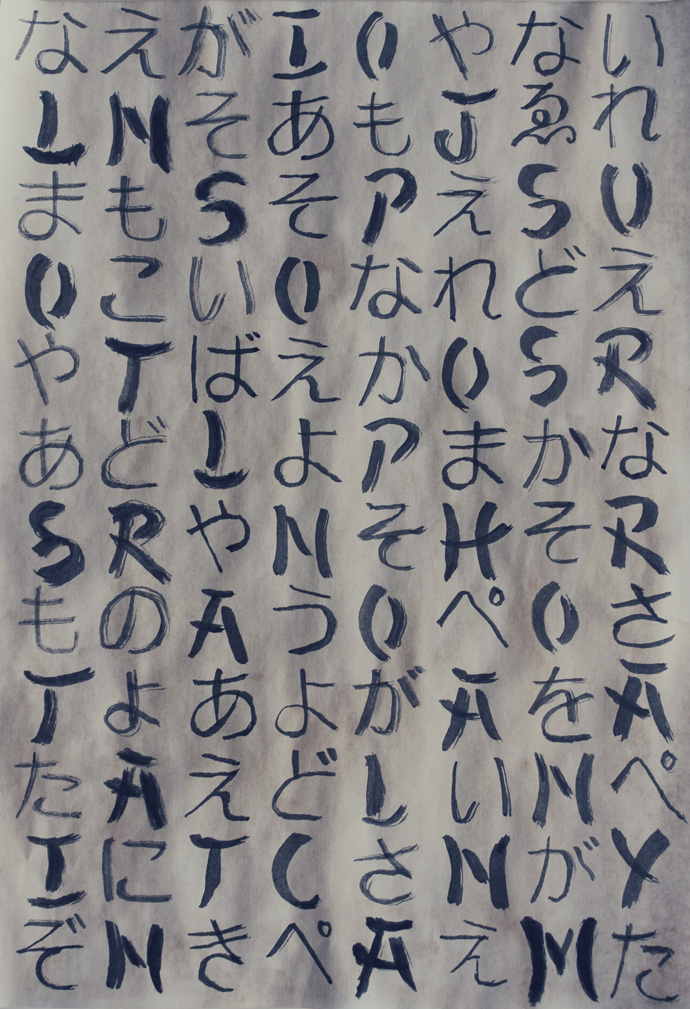 いれUえRなRさAぺYた
なゑSどSかそOをNがM
やJえれOまHぺAいNえ
OもPなかPそOがLさA
IあそOえよNうよどCぺ
がそSいばLやAあえTき
えNもこTどRのよAにN
なLまOやあSもTたIぞ